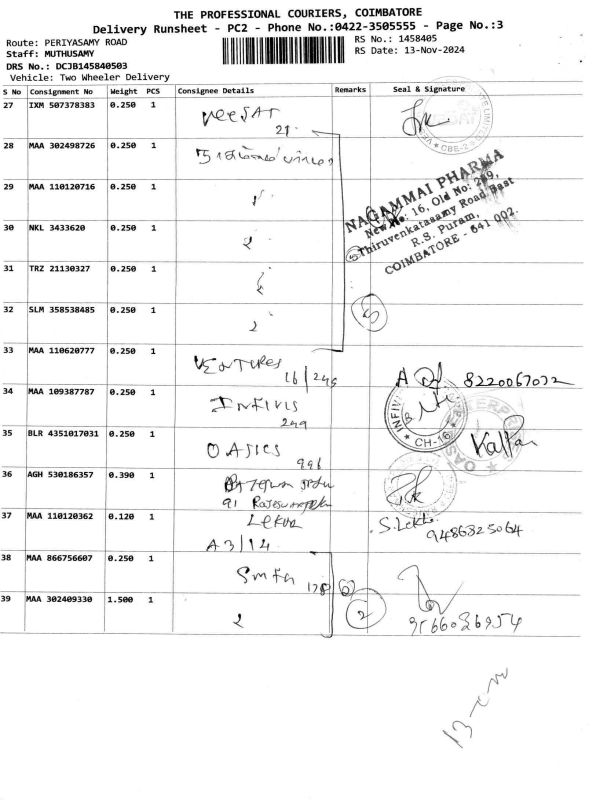 THE PROFESSIONAL COURIERS, COIMBATORE
Delivery Runsheet - PC2 - Phone No.:0422-3505555 - Page No.:3
Route: PERIYASAMY ROAD
RS No.: 1458405
Staff: MUTHUSAMY
RS Date: 13-Nov-2024
DRS No.: DCJB145840503
Vehicle: Two Wheeler Delivery
S No Consignment No Weight PCS Consignee Details Remarks Seal & Signature
27 IXM 507378383 0.250 1
21
28 MAA 302498726 0.250 1
29 MAA 110120716 0.250 1
NAGAMMAI PHARMA
New No: 16, Old No: 249,
Thiruvenkatasamy Road East
R.S. Puram,
COIMBATORE - 641 002.
30 NKL 3433620 0.250 1
31 TRZ 21130327 0.250 1
32 SLM 358538485 0.250 1
5
33 MAA 110620777 0.250 1 VENTURES
16/249
8220067072
34 MAA 109387787 0.250 1 INFIVIS
249
CH-16
35 BLR 4351017031 0.250 1 OASICS
996
Kalpan
36 AGH 530186357 0.390 1
91
37 MAA 110120362 0.120 1 Lekha
A3/14
S.Lekh
9486325064
38 MAA 866756607 0.250 1
39 MAA 302409330 1.500 1
2